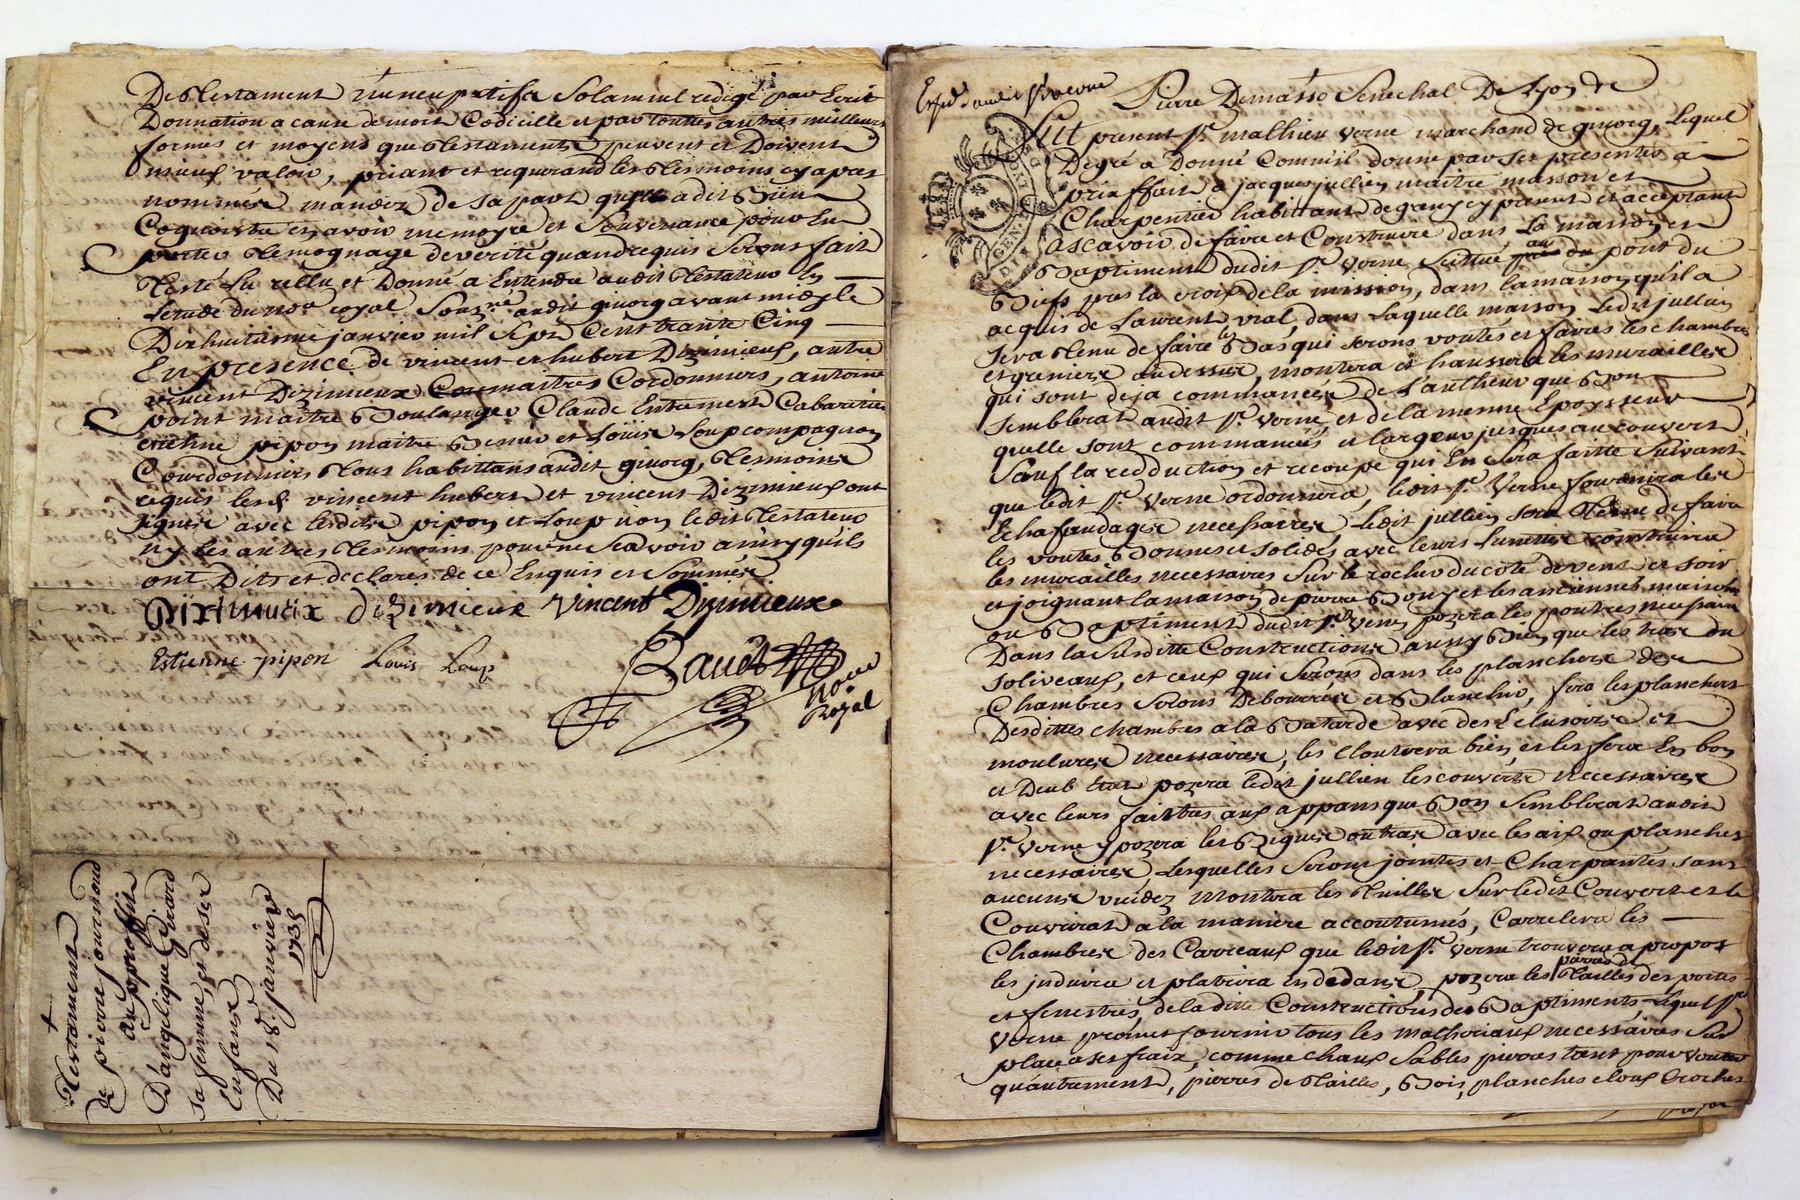 De Testament nuncupatif a Solamnel redigé par Ecrit
Donnation a cause de mort Codicille et par touttes autres meilleurs
formes et moyens que Testaments peuvent et Doivent
mieux valoir, priant et requerand les Tesmoins cy apres
nommés mandez de sa part qu'il a dit Bien
Cognoistre en avoir memoyre et Souvenance pour En
porter Témognage de verité quand requis Seront fait
Testé Lu rellu et Donné a Entendre audit Testateur En
letude du no.re royal Sous.né audit givorg avant midy le
Dixhuitieme janvier mil Sept Cent trante Cinq
En presence de vincent et hubert Dizimieux, autre
vincent Dizimieux maitres Cordonniers, antoine
point maitre Boulanger Claude Entremont Cabaretier
etienne pipon maitre et Loüis Loup compagnon
Courdonnier Tous habittans audit givorg, Tesmoins
requis lesd. vincent hubert et vincent Dizimieux ont
signés avec lesdits pipon et Loup non ledit Testateur
ny les autres Tesmoins pour ne Scavoir ainsy qu'ils
ont Dits et declares de ce Enquis et Sommés
Diximieux dizimieux Vincent Dizimieux
Estienne pipon Louis Loup
no.re
Royal
Testament
de pierre journoud
au proffit
D'angelique Girard
sa femme, et de ses
Enfans
Du 18.e janvier
1735
Pierre Demasso Senechal De Lyon
GEN DE
Fut present s.r mathieu verne marchand de givorg, Lequel
De gré a Donné Comme il donne par ses presentes a
prix ffait a jacques jullien maitre masson et
Charpentier habittant de cy present et acceptant
Ascavoir de faire et Construire dans La maison et
Baptiment dudit s.r verne Scittué au pont du
Gier pres la croix de la mission, dans la maison qu'il a
acquis de Laurent vial, dans Laquelle maison Ledit jullien
sera Tenu de faire les Bas qui Seront voutés et faires les chambres
et greniers au dessus, montera et haussera les murailles
qui sont deja commancés de L'autheur que Bon
Semblerat audit s.r verne, et de la mesme Epoisseur
quelle sont commancés et largeur jusques au couvert
Sauf la redduction et recoupe qui En Sera faitte Suivant
que ledit s.r verne ordonnera, ledit s.r verne fournira les
Echafaudages necessaires, ledit jullien sera Tenu de faire
les voutes Bonnes et solides avec leurs Lunettes construira
les murailles necessaires Sur le rocher du coté de vent et soir
et joignant la maison de pierre Bony et les anciennes maison
ou Baptiment dudit s.r verne, pozera les poutres necessaires
Dans la Susditte Construction aussy Bien que les trais du
soliveaux, et ceux qui Seront dans les planchers des
Chambres Seront Debourrés et Blanchis, fera les planchers
Desdittes chambres a la Batarde avec des et
moulures necessaires, les Clouttera bien, et les fera En bon
et Deub Etat pozera ledit jullien les couverts necessaires
avec leurs faittes aux appans que Bon Semblerat audit
s.r verne y pozera les ou trais avec les aix ou planches
necessaires Lesquelles Seront jointes et Charpantés sans
aucuns vuidez montera les Tuilles Sur ledit Couvert et le
Couvrirat a la maniere accoutumés, Carrelera les
Chambres des Carreaux que ledit s.r verne trouvera a propos
les induira et platrira En dedans, pozera les pierres de Tailles des portes
et fenestres, de laditte Construction des Baptiments Lequel s.r
verne promet fournir tous les matheriaux necessaires Sur
place a ses fraix, comme chaux Sables pierres tant pour voutes
qu'autrement, pierres de Tailles, Bois, planches cloux Croches